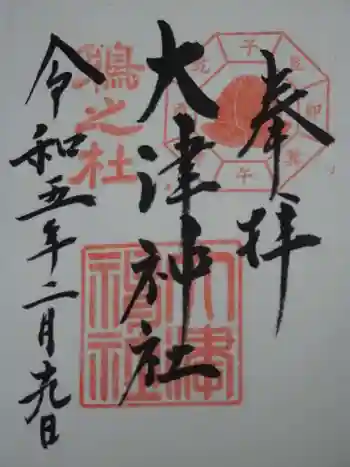 奉拝
大津神社
令和五年二月十九日
鵲之杜
子
卯
午
酉
乾
艮
巽
大津神社